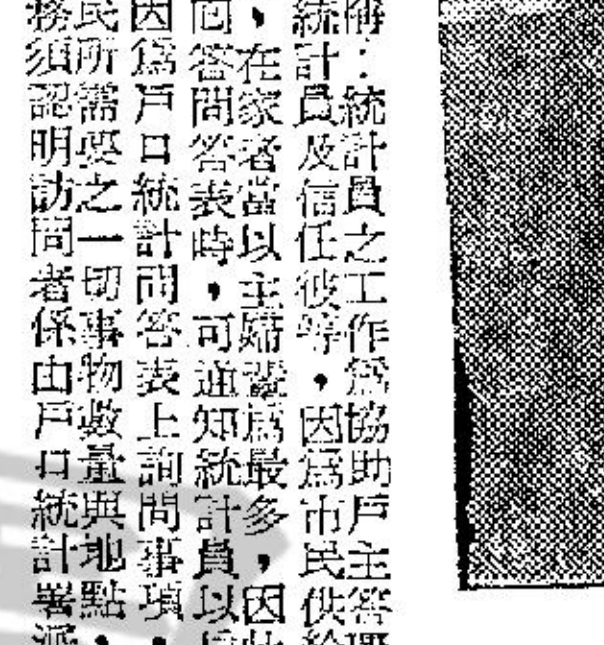 稱：統計員之工作爲協助戶主答
統計員及信任彼等，因爲市民供給
，在家者當以主婦 爲最多，因此
回答問答表時，可通知統計員，以
因爲戶口統計問答表上詢問事項，
民所需要之一切事物數量與地點，
務須認明訪問者係由戶口統計署派